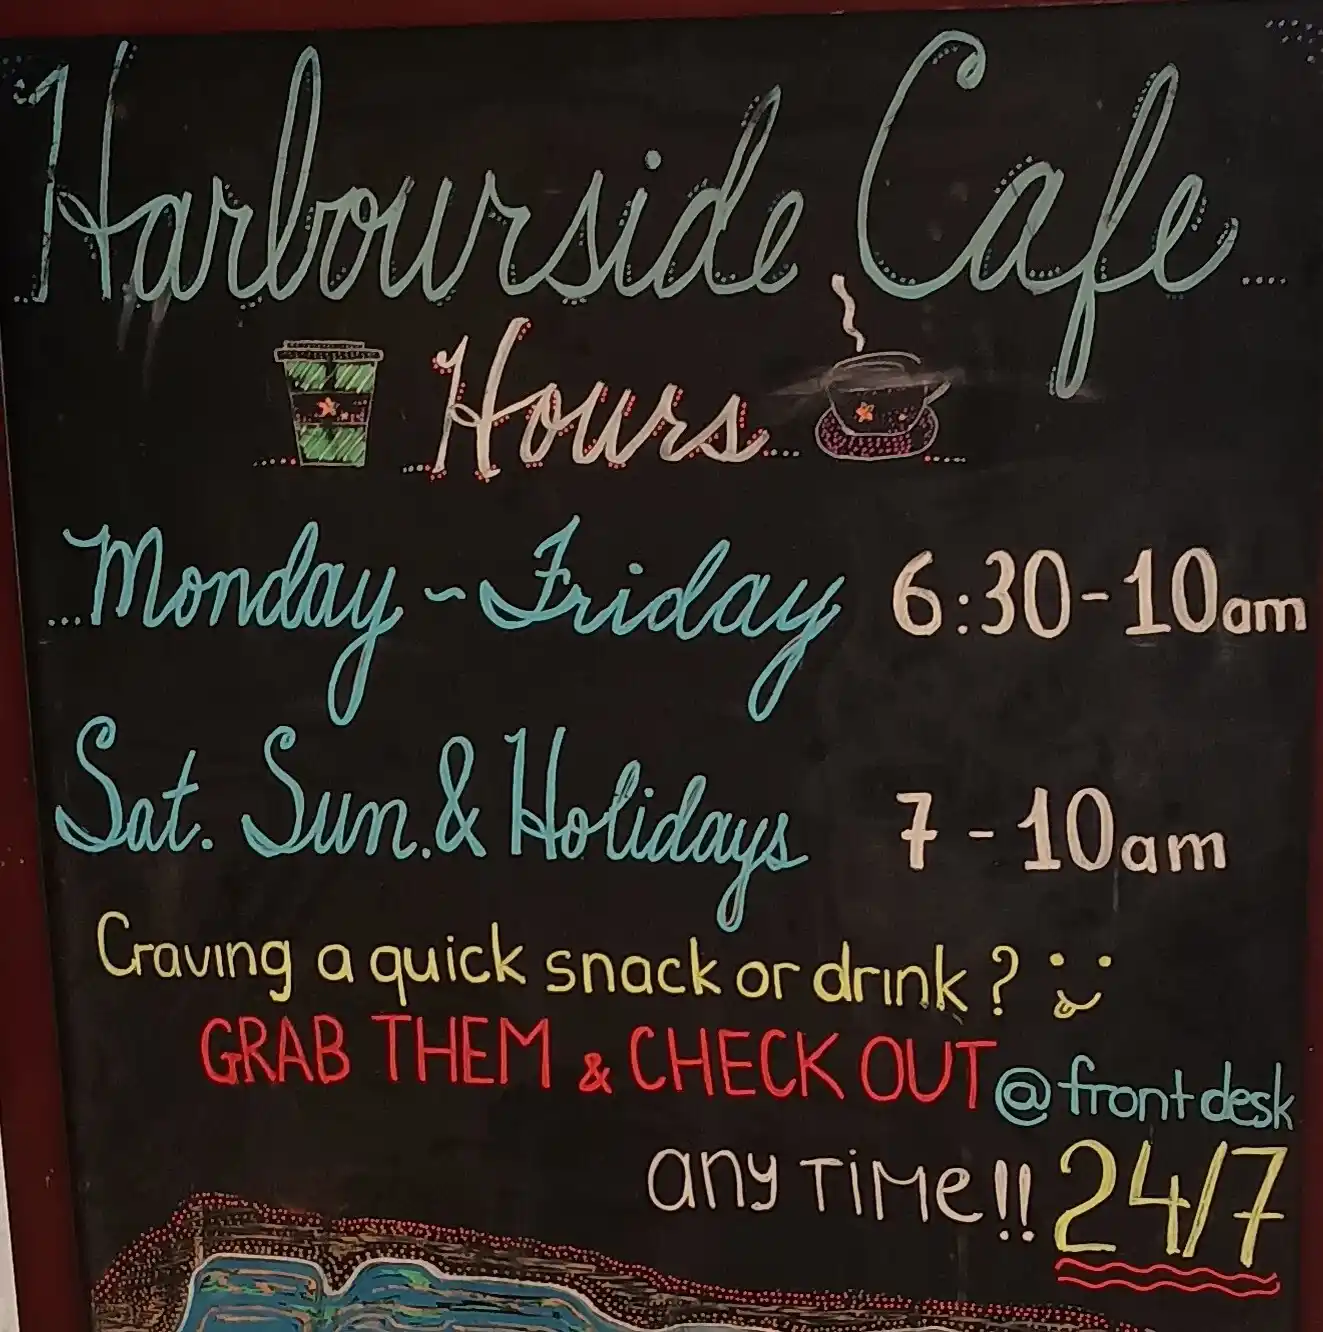 Harbourside Cafe....
Hours...
...Monday ~ Friday 6:30-10am
Sat. Sun. & Holidays 7 - 10am
Craving a quick snack or drink?
GRAB THEM & CHECK OUT @ front desk
any TiMe!! 24/7